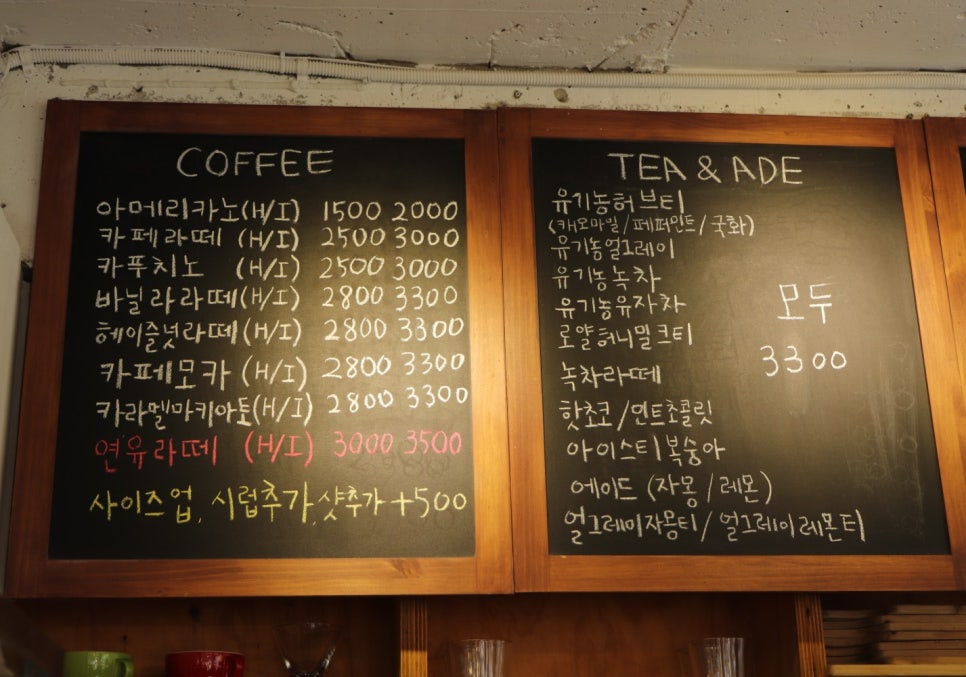 COFFEE
아메리카노(H/I) 1500 2000
카페라떼 (H/I) 2500 3000
카푸치노 (H/I) 2500 3000
바닐라라떼(H/I) 2800 3300
헤이즐넛라떼(H/I) 2800 3300
카페모카 (H/I) 2800 3300
카라멜마키아토(H/I) 2800 3300
연유라떼 (H/I) 3000 3500
사이즈업, 시럽추가, 샷추가 +500
TEA & ADE
유기농허브티
(캐모마일/페퍼민트/국화)
유기농얼그레이
유기농녹차
유기농유자차
로얄허니밀크티
녹차라떼
핫초코/민트초콜릿
아이스티복숭아
에이드 (자몽/레몬)
얼그레이자몽티/얼그레이레몬티
모두
3300